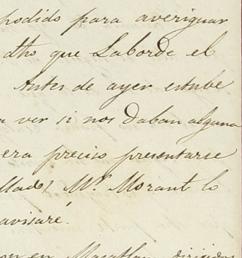 podido para averiguar
dho que Laborde el
Antes de ayer estube
a ver si nos daban alguna
era preciso presentarse
llado, Mr. Morant lo
avisaré.
en Mazatlan dirigidas